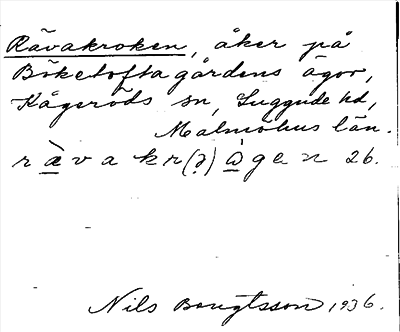 Rävakroken, åker på
Böketoftagårdens ägor,
Kågeröds sn, Luggude hd,
Malmöhus län.
r ä̀ v a k r (?) å̀ g e n 26.
Nils Bengtsson 1936.